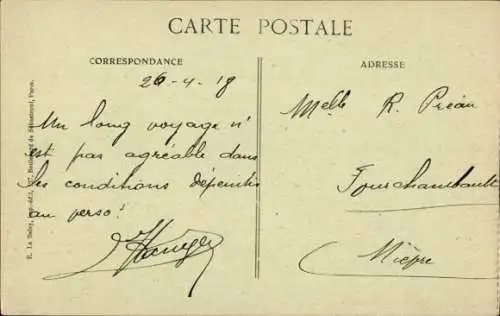 CARTE POSTALE
CORRESPONDANCE
26-4-18
Un long voyage n'
est pas agréable dans
les conditions dépeintes
au verso!
ADRESSE
Melle R. Préau
Fourchambault
Nièvre
E. Le Deley, imp.-éd., 127, Boulevard de Sébastopol, Paris.